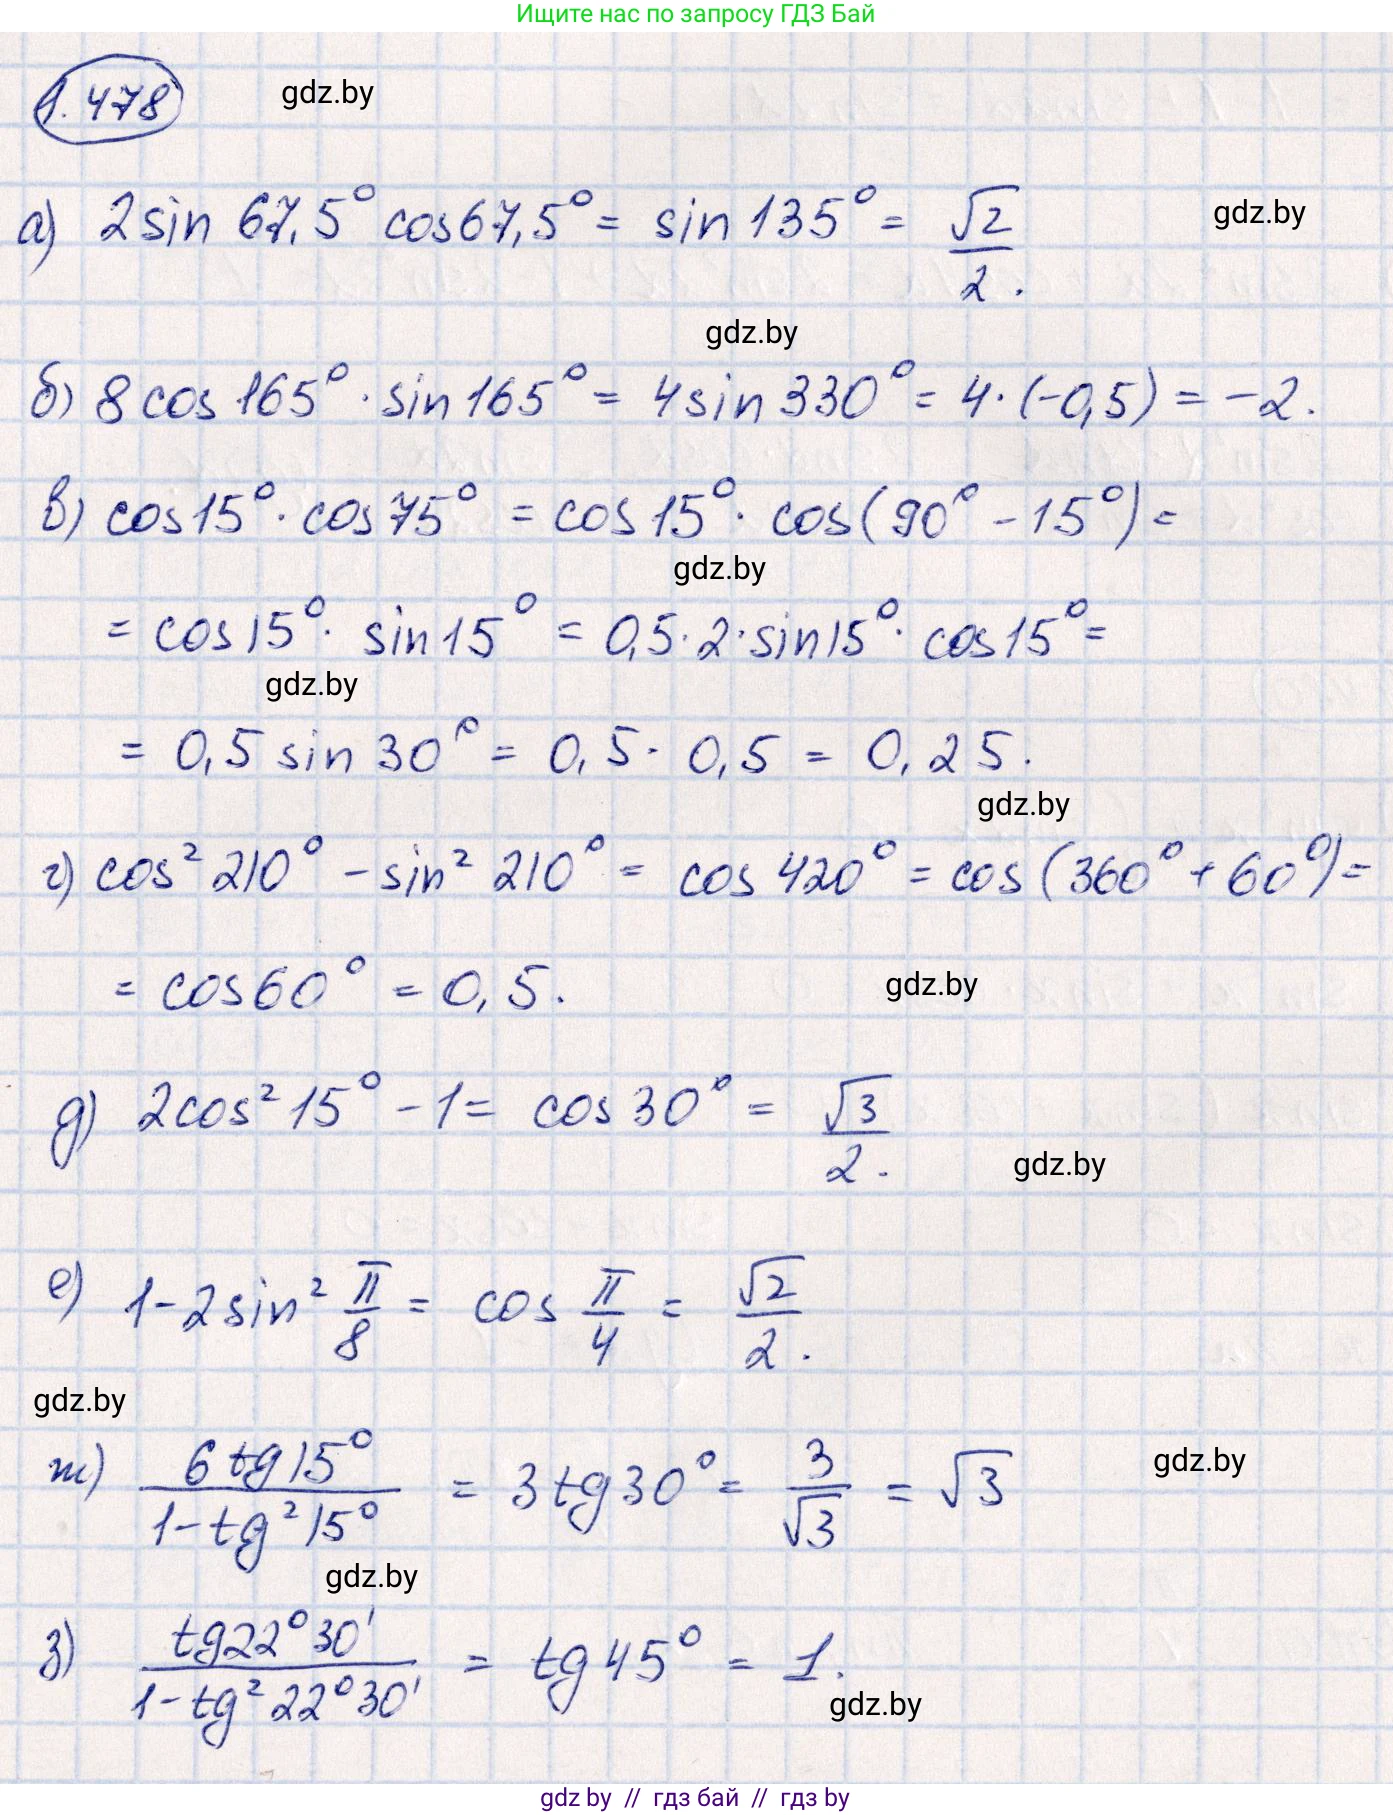 Ищите нас по запросу ГДЗ Бай
1.478 gdz.by
а) 2sin 67,5° cos67,5° = sin 135° = √2/2. gdz.by
gdz.by
б) 8cos165° · sin165° = 4sin330° = 4·(-0,5) = -2.
в) cos15° · cos75° = cos15° · cos(90° - 15°) =
gdz.by
= cos15° · sin15° = 0,5·2·sin15° · cos15° =
gdz.by
= 0,5 sin 30° = 0,5 · 0,5 = 0,25.
gdz.by
г) cos² 210° - sin² 210° = cos 420° = cos(360° + 60°) =
= cos60° = 0,5. gdz.by
д) 2cos² 15° - 1 = cos30° = √3/2.
gdz.by
е) 1-2sin² π/8 = cos π/4 = √2/2.
gdz.by
ж) 6tg15°/1-tg²15° = 3tg30° = 3/√3 = √3 gdz.by
gdz.by
з) tg22°30'/1-tg²22°30' = tg45° = 1.
gdz.by
gdz by // гдз бай // гдз by